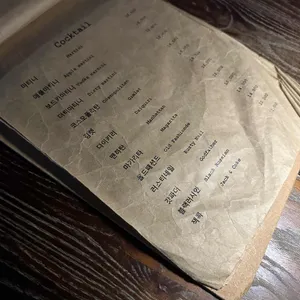 Cocktail
마티니 Martini
애플마티니 Apple martini
보드카마티니 Vodka martini
더티마티니 Dirty martini
코스모폴리탄 Cosmopolitan
김렛 Gimlet
다이키리 Daiquiri
맨하탄 Manhattan
마가리타 Magarita
올드패션드 Old Fashioned
러스티네일 Rusty Nail
갓파더 Godfather
블랙러시안 Black Russian
잭콕 Jack & Coke